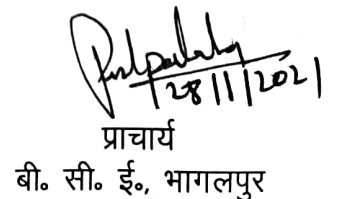 28/11/2021
प्राचार्य
बी॰ सी॰ ई॰, भागलपुर